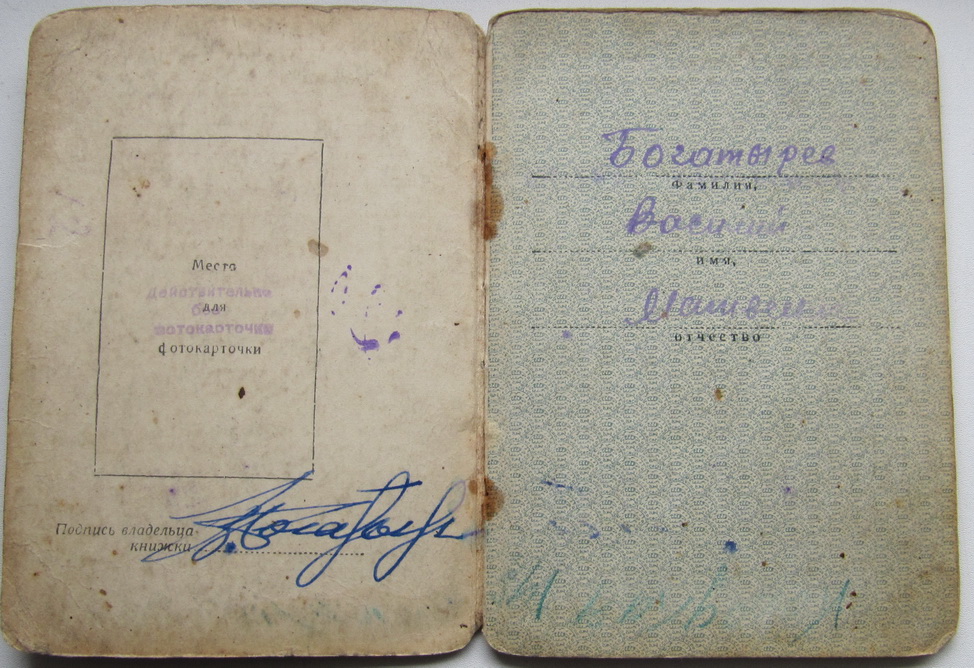 Место
Действительно
без
для
фотокарточки
фотокарточки
Подпись владельца
книжки
Богатырев
Фамилия,
Василий
имя,
отчество